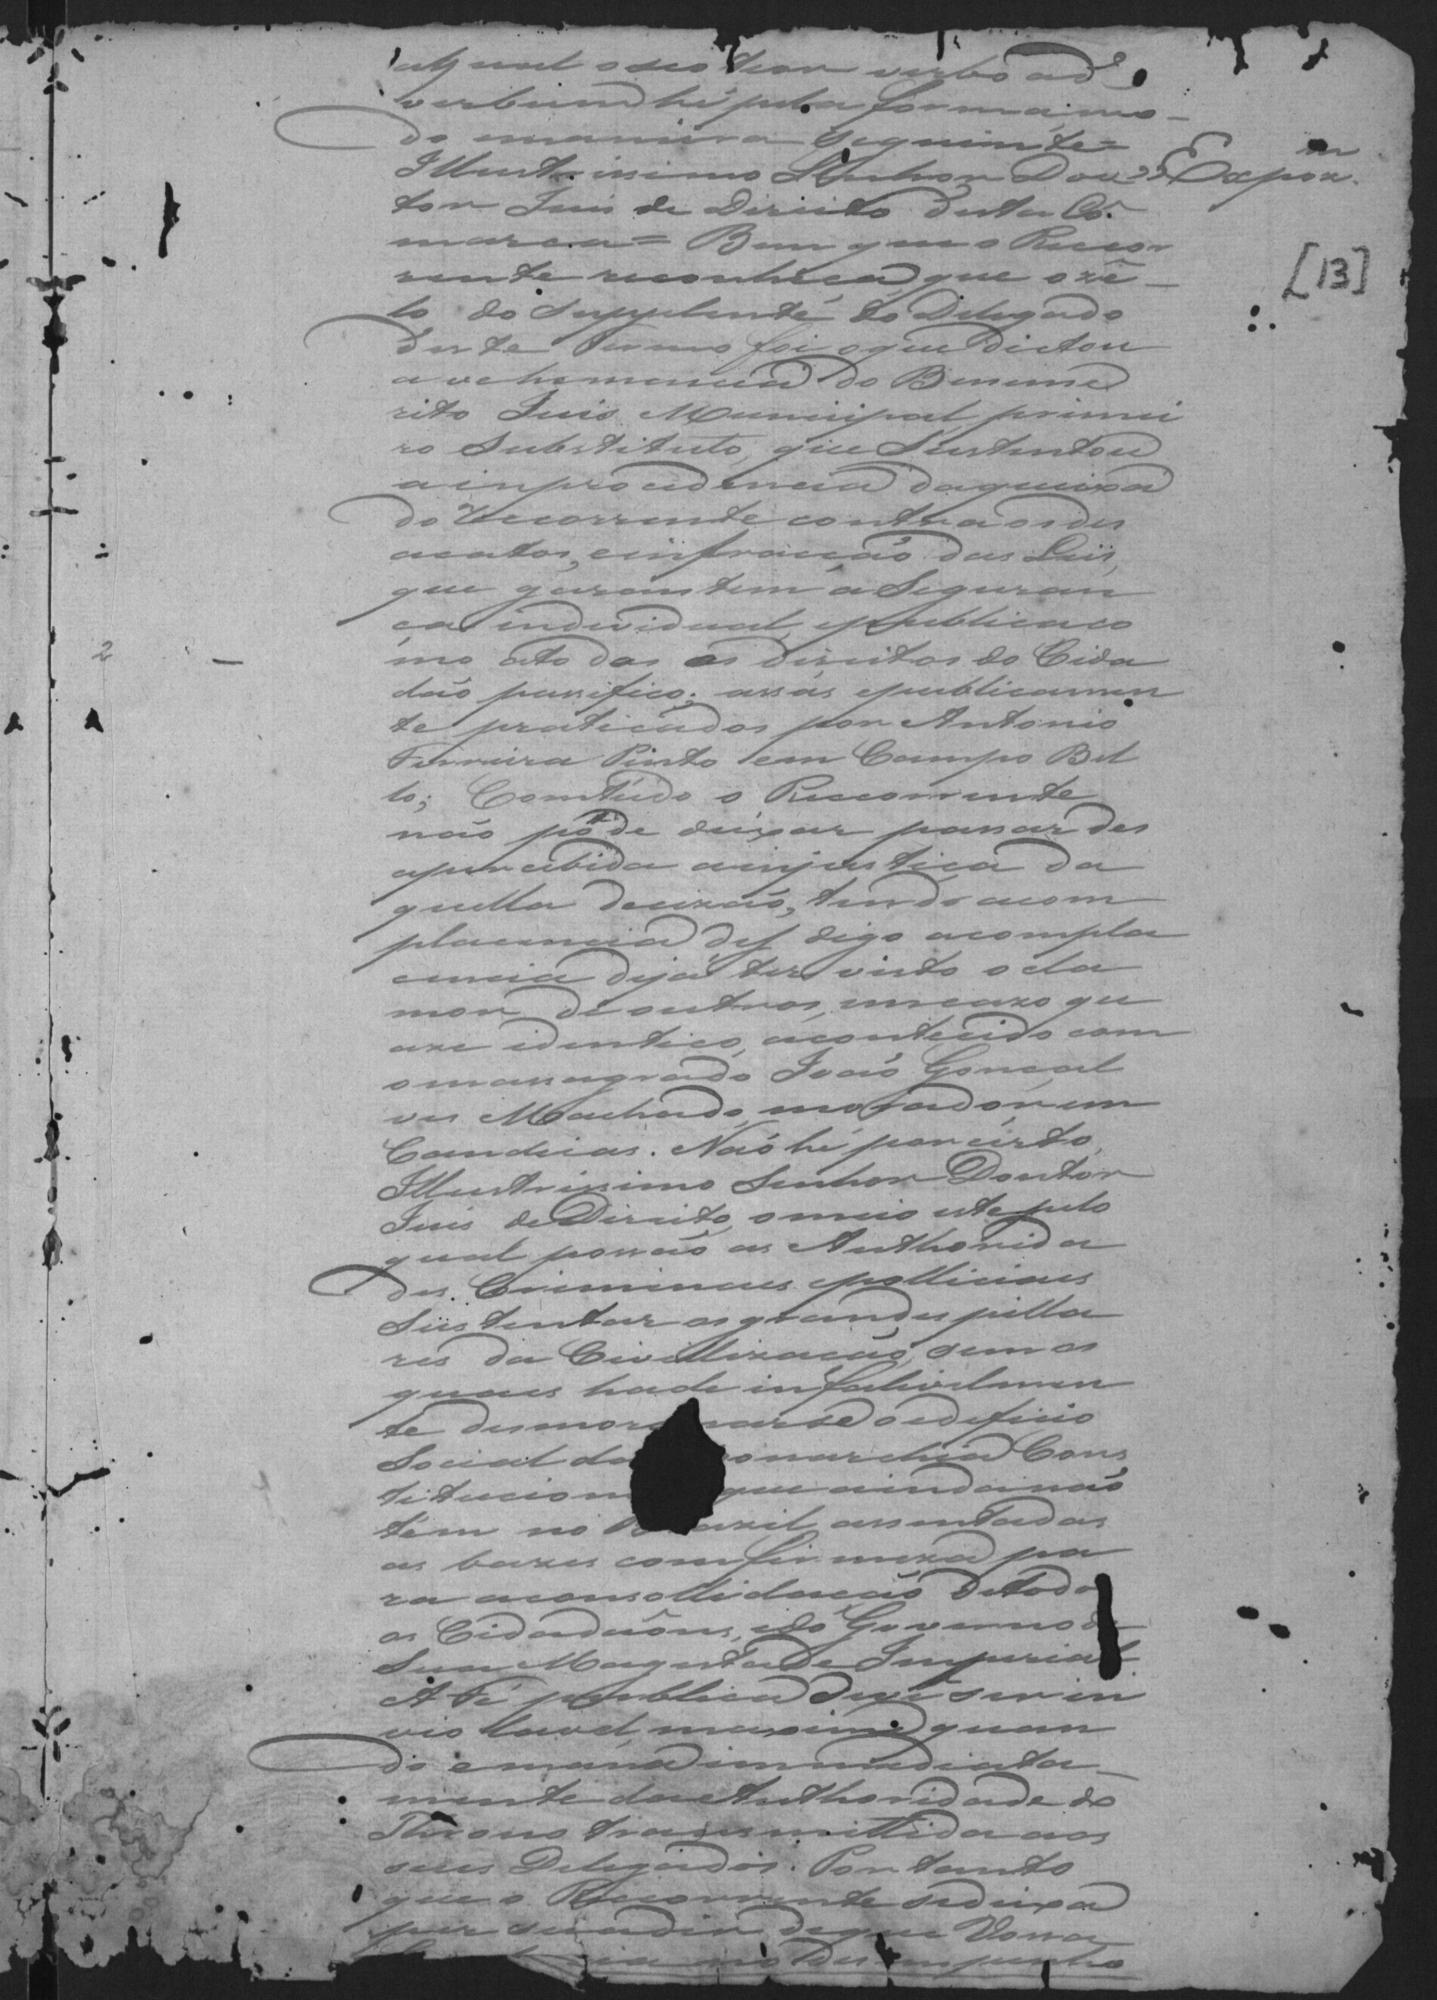 a qual o seo theor verbo ad
verbum hé pela forma, mo-
do maneira seguinte=
Illustrissimo Senhor Dou- Expozm.
tor Juis de Direito desta Co-
marca= Bem que o Recor
rente reconheça que o zê-
lo do Supplente do Delegado
deste Termo foi o que dictou
a vehemencia do Beneme
rito Juis Municipal primei
ro Substituto, que Sustentou
a inprocidencia da queixa
do Recorrente contra os des
acatos, e infracção das Leis,
que garantem a Seguran
ça individual, e publica co
mo a todas as direitos do Cida
dão passifico; assás e publicamen
te praticados por Antonio
Ferreira Pinto em Campo Bel
lo; Comtudo o Recorrente
não pôde deixar passar des
apercebida a injustiça da
quella decizaõ, tendo acom
placencia de digo a compla
cencia de já ter visto o cla
mor de outros, em cazo qu
aze identico, acontecido com
o massagrado Joaõ Goncal
ves Machado, morador em
Candeias. Naõ hé por certo,
Illustrissimo Senhor Doutor
Juis de Direito, o meio este pelo
qual possaõ as Authorida
des Criminaes e polliciaes
Sustentar os grandes pilla
res da Civillizacaõ, sem os
quaes hade infalivelmen
te desmoronarse o edificio
Social da Monarchia Cons
titucional que ainda naõ
têm no Brazil assentadas
as bazes com firmeza pa
ra a consollidacaõ de todos
os Cidadaõns, e do Governo de
Sua Magestade Imperial
A Fé publica deve ser in
violavel, maxime quan
do emana immediata-
mente da Authoridade do
Throno transmittida aos
seus Delegados. Por tanto
que o Recorrente se deixa
persuadir de que Vossa
no desempenho
[13]
2